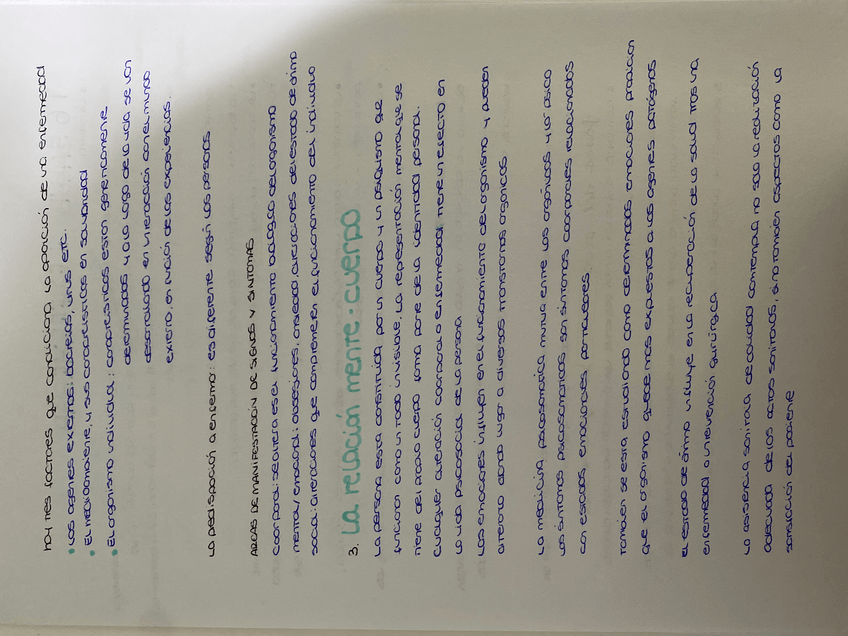 hay tres factores que condicionan la aparición de una enfermedad
• Los agentes externos: bacterias, virus, etc.
• El medio ambiente, y sus características en salubridad
• El organismo individual: características están genéticamente
determinadas y a lo largo de la vida se van
desarrollando en interacción con el mundo
externo, en función de las experiencias.
la predisposición a enfermar: es diferente según las personas
AREAS DE MANIFESTACIÓN DE SIGNOS Y SINTOMAS
Corporal: se altera es el funcionamiento biológico del organismo
mental/emocional: obsesiones, ansiedad, alteraciones del estado de ánimo
social: alteraciones que comprometen el funcionamiento del individuo
3. La relación mente-cuerpo
La persona está constituida por un cuerpo y un psiquismo que
funcionan como un todo indivisible. La representación mental que se
tiene del propio cuerpo forma parte de la identidad personal.
Cualquier alteración corporal o enfermedad tiene un efecto en
la vida psicosocial de la persona
Las emociones influyen en el funcionamiento del organismo y pueden
alterarlo dando lugar a diversos transtornos orgánicos
La medicina psicosomática media entre los orgánicos y lo psico
Los síntomas psicosomáticos son síntomas corporales relacionados
con estados emocionales perturbadores
También se está estudiando como determinadas emociones propician
que el organismo quede más expuestos a los agentes patógenos
el estado de ánimo influye en la recuperación de la salud tras una
enfermedad o intervención quirúrgica
La asistencia sanitaria de calidad contempla no solo la realización
adecuada de los actos sanitarios, sino también aspectos como la
satisfacción del paciente